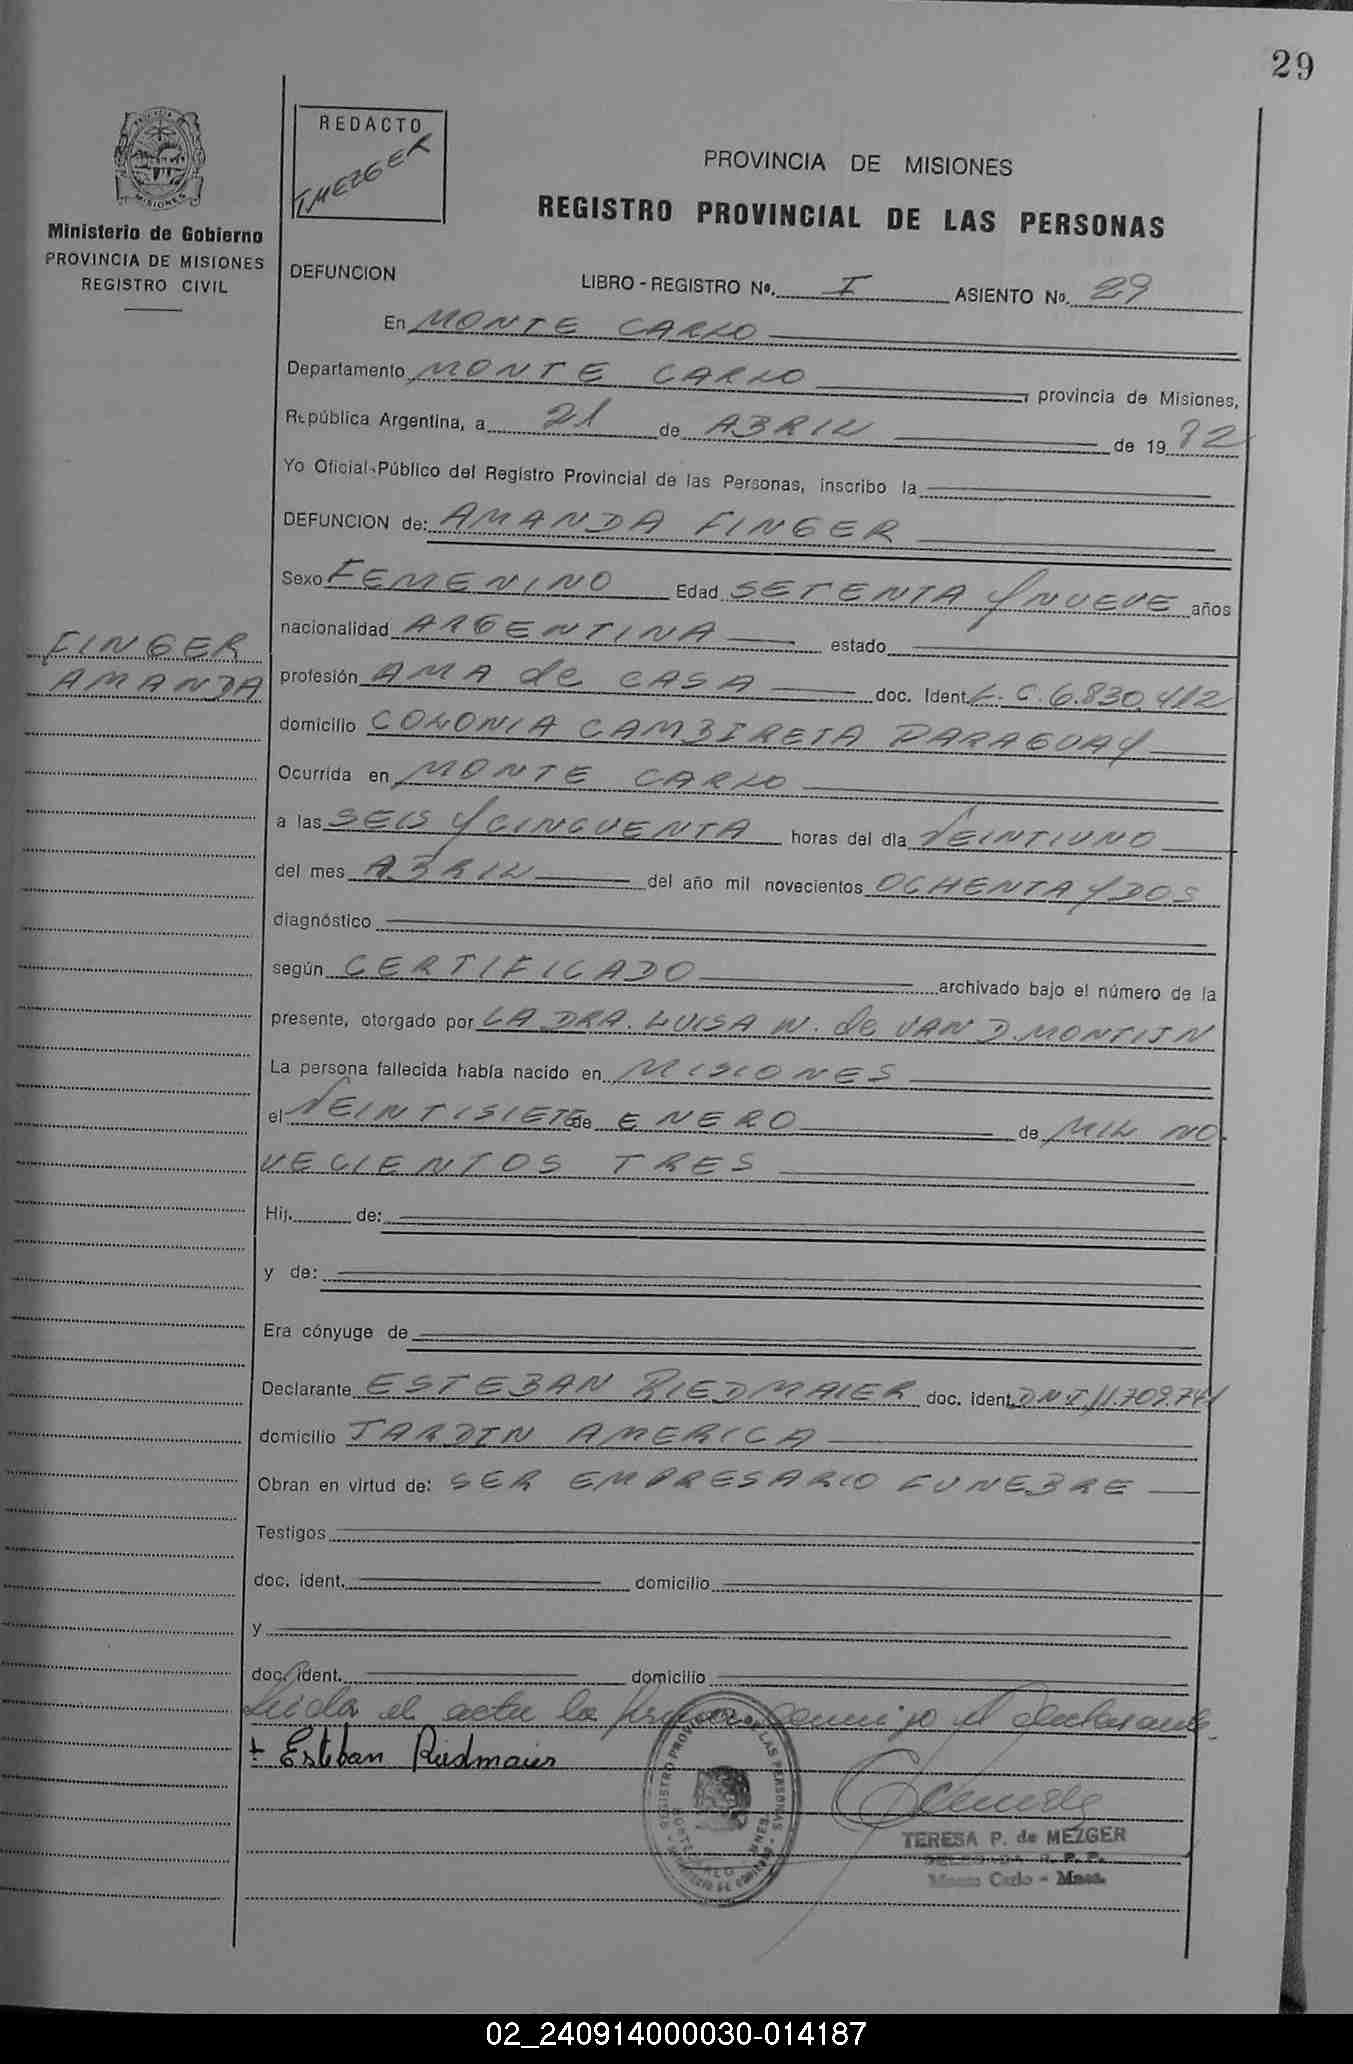 29
REDACTO
T MEZGER
PROVINCIA DE MISIONES
REGISTRO PROVINCIAL DE LAS PERSONAS
MISIONES
Ministerio de Gobierno
PROVINCIA DE MISIONES
REGISTRO CIVIL
DEFUNCION LIBRO - REGISTRO Nº. I ASIENTO Nº. 29
En MONTE CARLO
Departamento MONTE CARLO , provincia de Misiones,
República Argentina, a 21 de ABRIL de 19 82
Yo Oficial Público del Registro Provincial de las Personas, inscribo la
DEFUNCION de: AMANDA FINGER
Sexo FEMENINO Edad SETENTA Y NUEVE años
nacionalidad ARGENTINA estado
FINGER
AMANDA
profesión AMA de CASA doc. Ident. L. C. 6.830.412
domicilio COLONIA CAMBIRETA PARAGUAY
Ocurrida en MONTE CARLO
a las SEIS Y CINCUENTA horas del día VEINTIUNO
del mes ABRIL del año mil novecientos OCHENTA Y DOS
diagnóstico
según CERTIFICADO archivado bajo el número de la
presente, otorgado por LA DRA. LUISA W. de VAN D. MONTIJN
La persona fallecida había nacido en MISIONES
el VEINTISIETE de ENERO de MIL NO
VECIENTOS TRES
Hij. de:
y de:
Era cónyuge de
Declarante ESTEBAN RIEDMAIER doc. ident. DNI. 11.709.741
domicilio JARDIN AMERICA
Obran en virtud de: SER EMPRESARIO FUNEBRE
Testigos
doc. ident. domicilio
y
doc. ident. domicilio
Leida el acta la firma conmigo el declarante.
Esteban Riedmaier
REGISTRO PROVINCIAL DE LAS PERSONAS
TERESA P. de MEZGER
DELEGADA R. P. P.
Monte Carlo - Mnes.
02_240914000030-014187